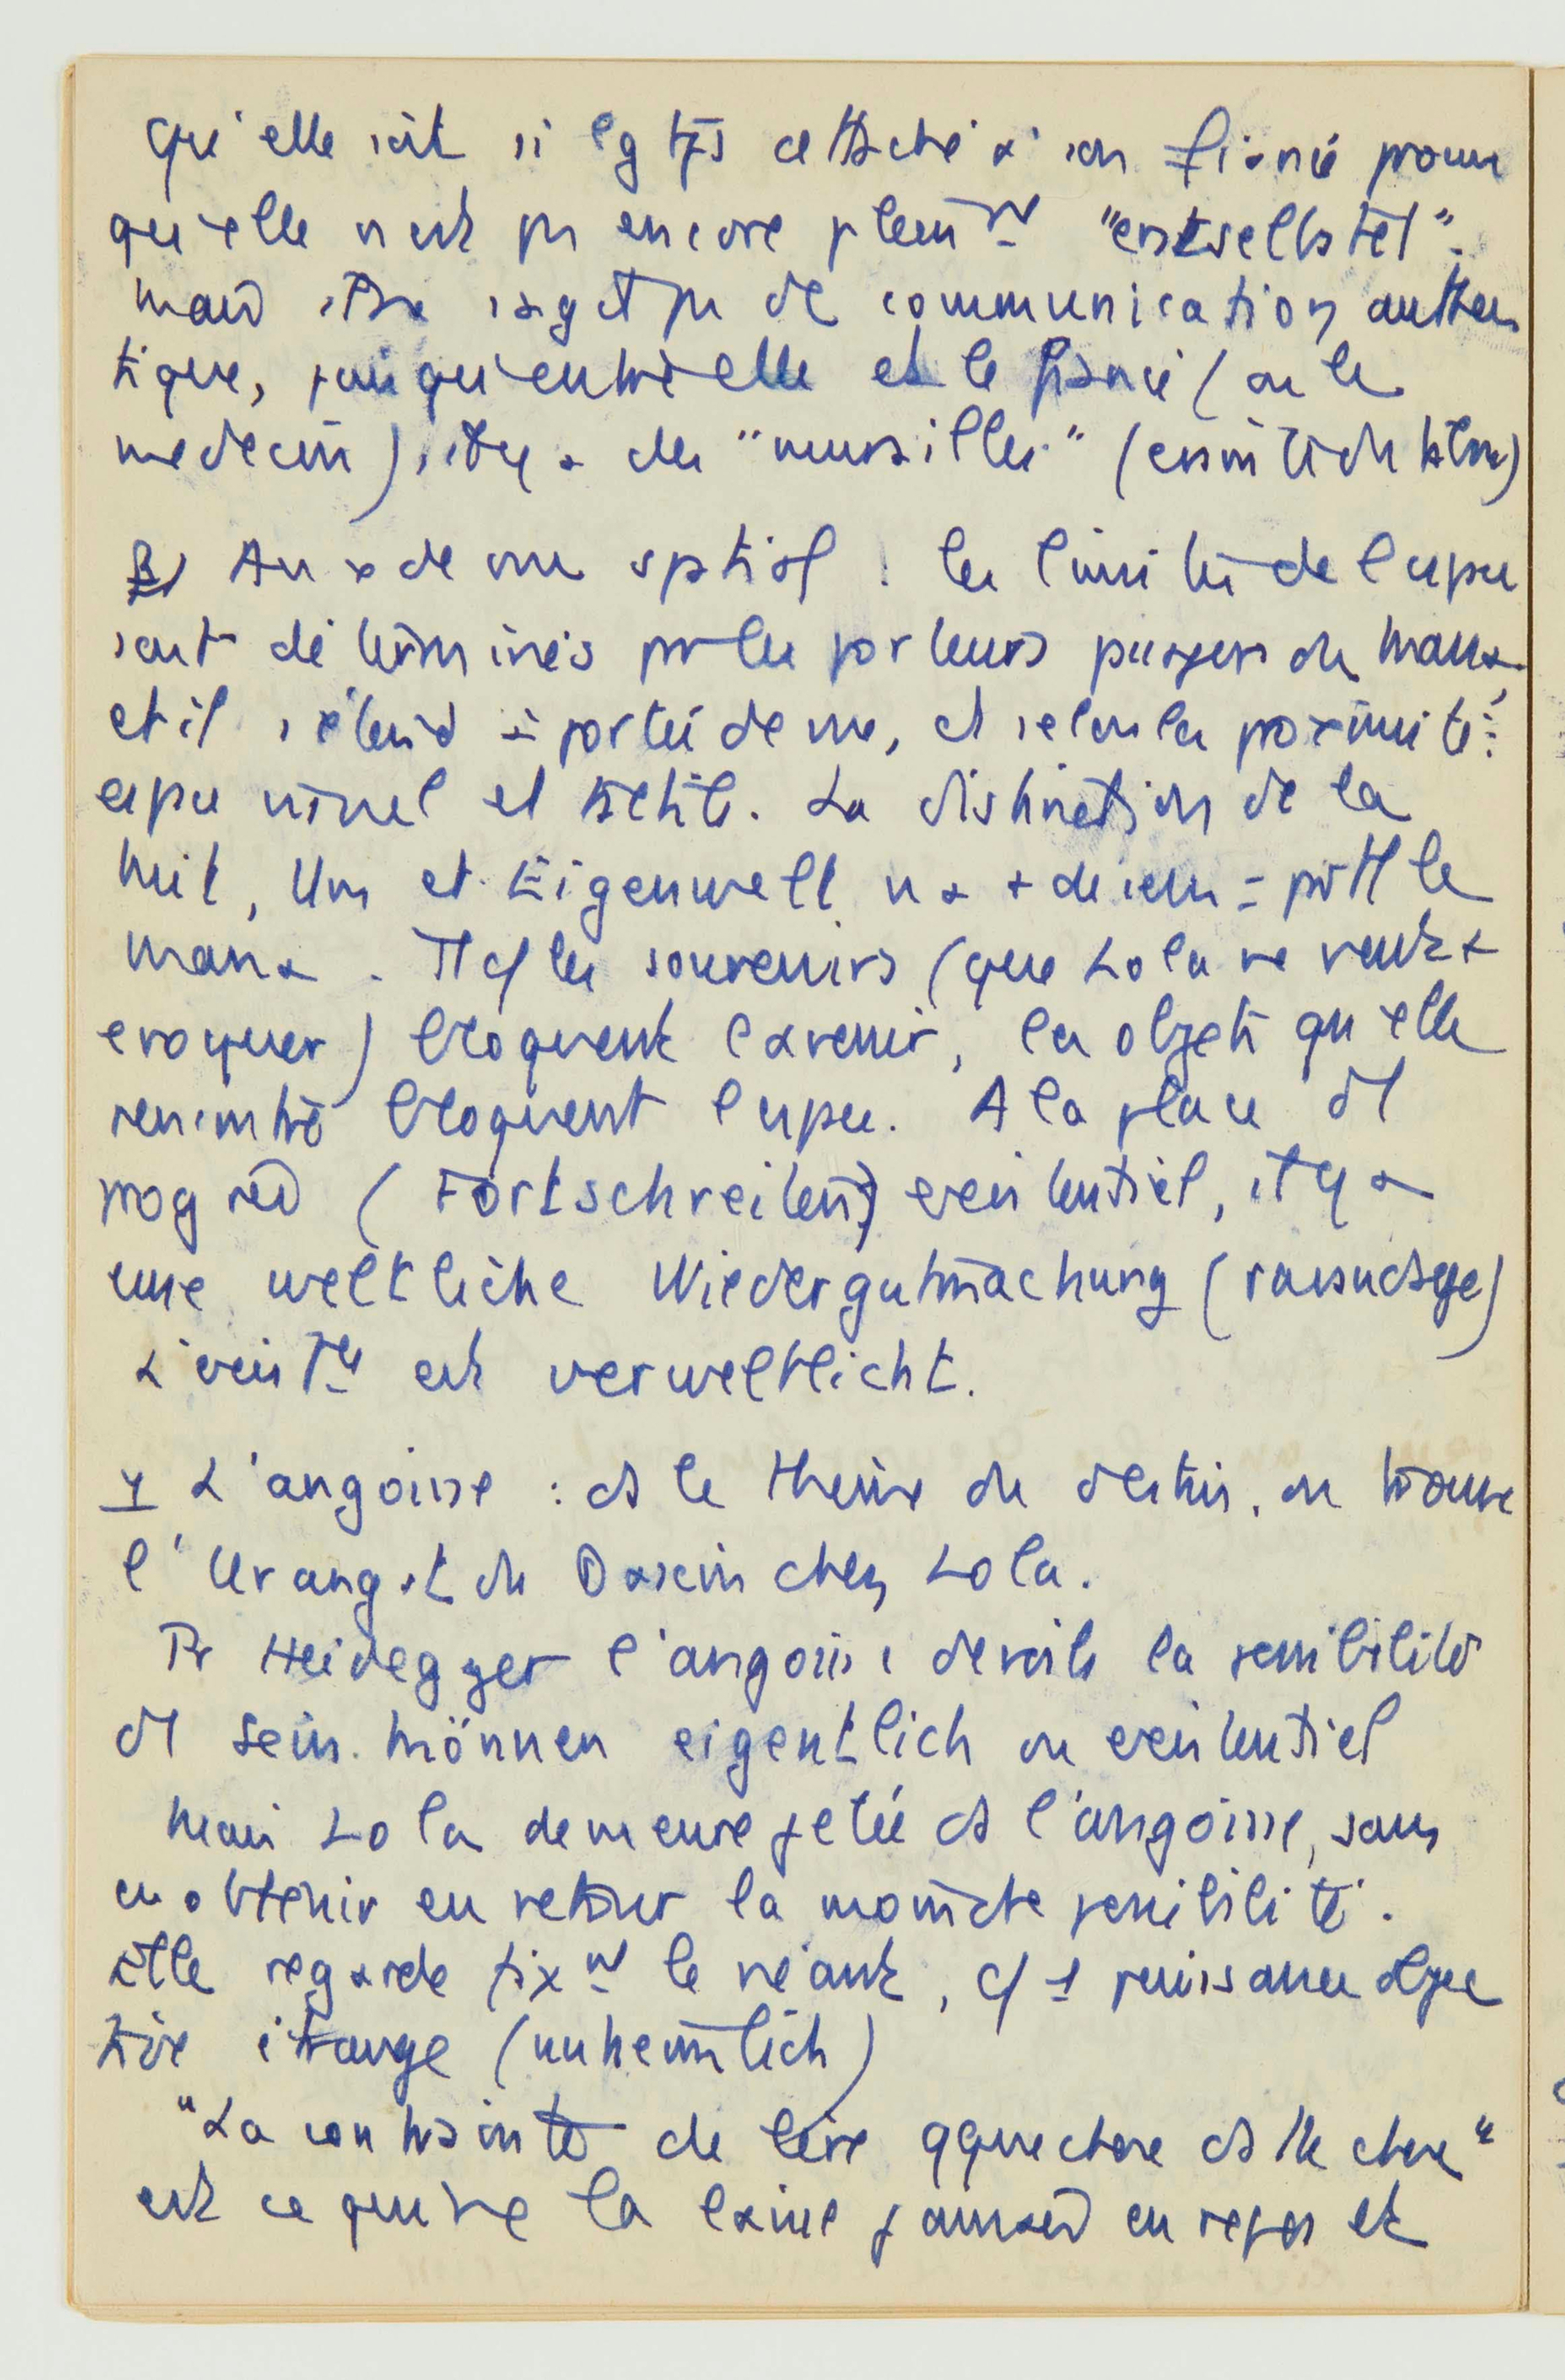 qu'elle soit si lgtps attaché à son fiancé prouve
qu'elle n'est pas encore pleinᵗ "entselbstet".
mais il ne s'agit pas de communication authen
tique, puisqu'entre elle et le fiancé (ou le
médecin), il y a des "murailles"
β) Au x de vue spatial : les limites de l'espace
sont déterminés par les porteurs puissances du mana,
et il s'étend à portée de vue, et selon la proximité :
espace visuel et tactile. La distinction de la
Mit, Um et Eigenwelt n'a + de sens = pour le
mana. Tt cō les souvenirs (que Lola ne veut pas
évoquer) bloquent l'avenir, les objets qu'elle
rencontre bloquent l'espace. A la place du
progrès (Fortschreiten) existentiel, il y a
une weltliche Wiedergutmachung
L'existce est verweltlicht.
γ L'angoisse : ds le thème du destin, on trouve
l'Urangst du Dasein chez Lola.
Pr Heidegger l'angoisse dévoile la possibilité
du Sein-können eigentlich ou existentiel
Mais Lola demeure jetée ds l'angoisse, sans
en obtenir en retour la moindre possibilité.
Elle regarde fixᵗ le néant, cō 1 puissance objec
tive étrange (unheimlich)
"La contrainte de lire qquechose ds les choses"
est ce qui ne la laisse jamais en repos et